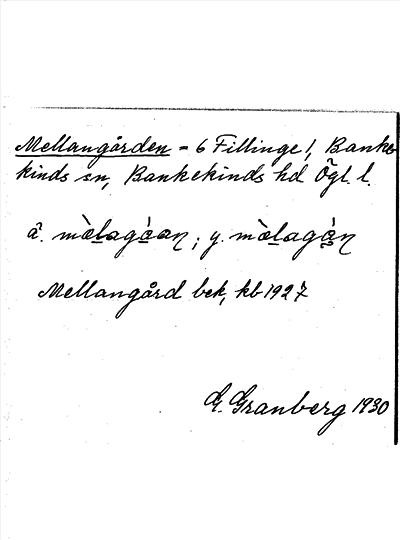 Mellangården = 6 Fillinge 1, Banke-
kinds sn, Bankekinds hd Ögl. l.
ä. mèlagå̀an; y. mèlagå̀n
Mellangård bek, kb 1927
G. Granberg 1930